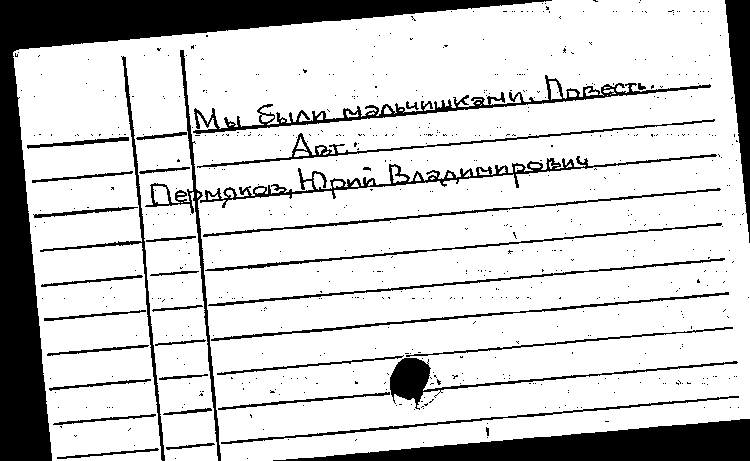 Мы были мальчишками. Повесть.
Авт.:
Пермяков, Юрий Владимирович